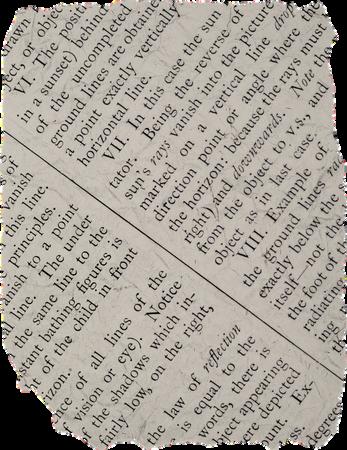 VI. The posit
in a sunset) behin
of the uncompleted
ground lines are obtain
a point exactly vertically
horizontal line.
VII In this case the sun
tator. Being the reverse of
sup's rays vanish into the picture
marked on a vertical line drop
direction point or angle where the
the horizon; because the rays must
right) and downwards. Note th
from the object to v.s. and
object as in last case.
VIII. Example of
the ground lines ra
exactly below the
itself—not
the foot of
radiatin
of
principles.
is line,
nish to a point
line. The under
the same line to the
stant bathing figures is
of the child in front
izon.
nce of all lines of the
vision or eye). Notice
of the shadows which in-
fairly low, on the right,
he law of reflection
is equal to the
words, there is
ject appearing
ere depicted
unt. Ex-
degree